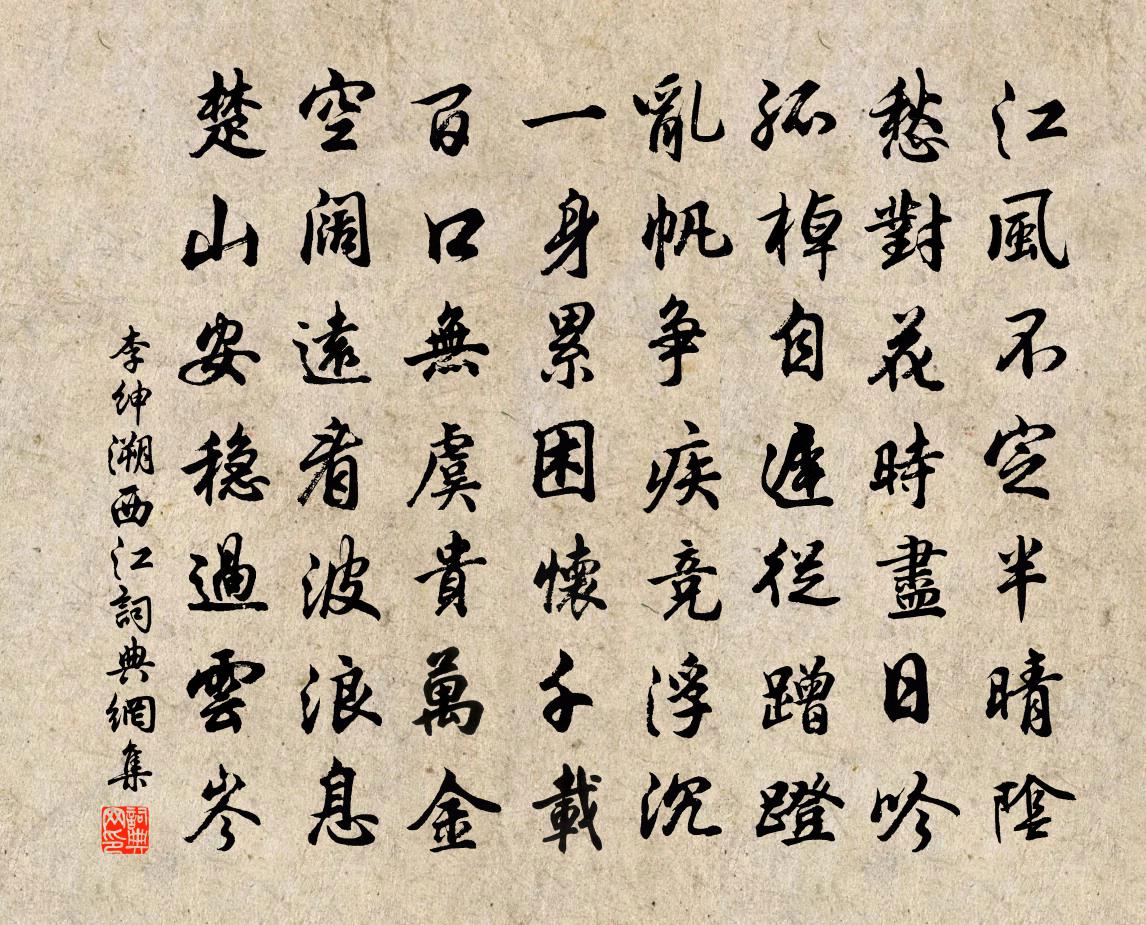 江風不定半晴陰
愁對花時盡日吟
孤棹自遲從蹭蹬
亂帆爭疾竞浮沉
一身累困懷千載
百口無虞貴萬金
空闊遠看波浪息
楚山安穩過雲岑
李紳溯西江詞典網集
詞典網印